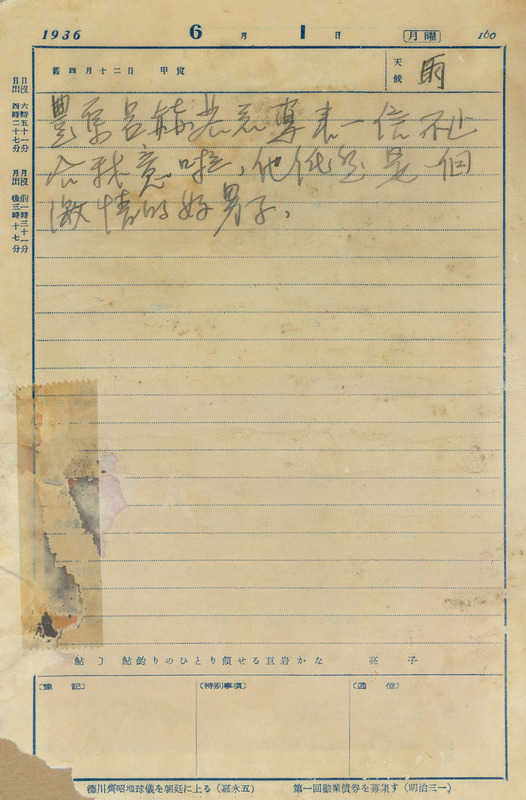 1936 6月 1日 月曜 160
舊四月十二日 甲寅 天候 雨
日出 四時二十七分 月出 後三時十七分
日沒 六時五十一分 月沒 前一時三十一分
豊原呂赫若君專來一信不止
合我意啦、他 是個
激情的好男子、
鮎 鮎釣りのひとり領せる巨岩かな 子
〔豫記〕 〔特別事項〕 〔通信〕
德川齊昭地球儀を朝廷に上る（嘉永五） 第一回勸業債券を募集す（明治三一）